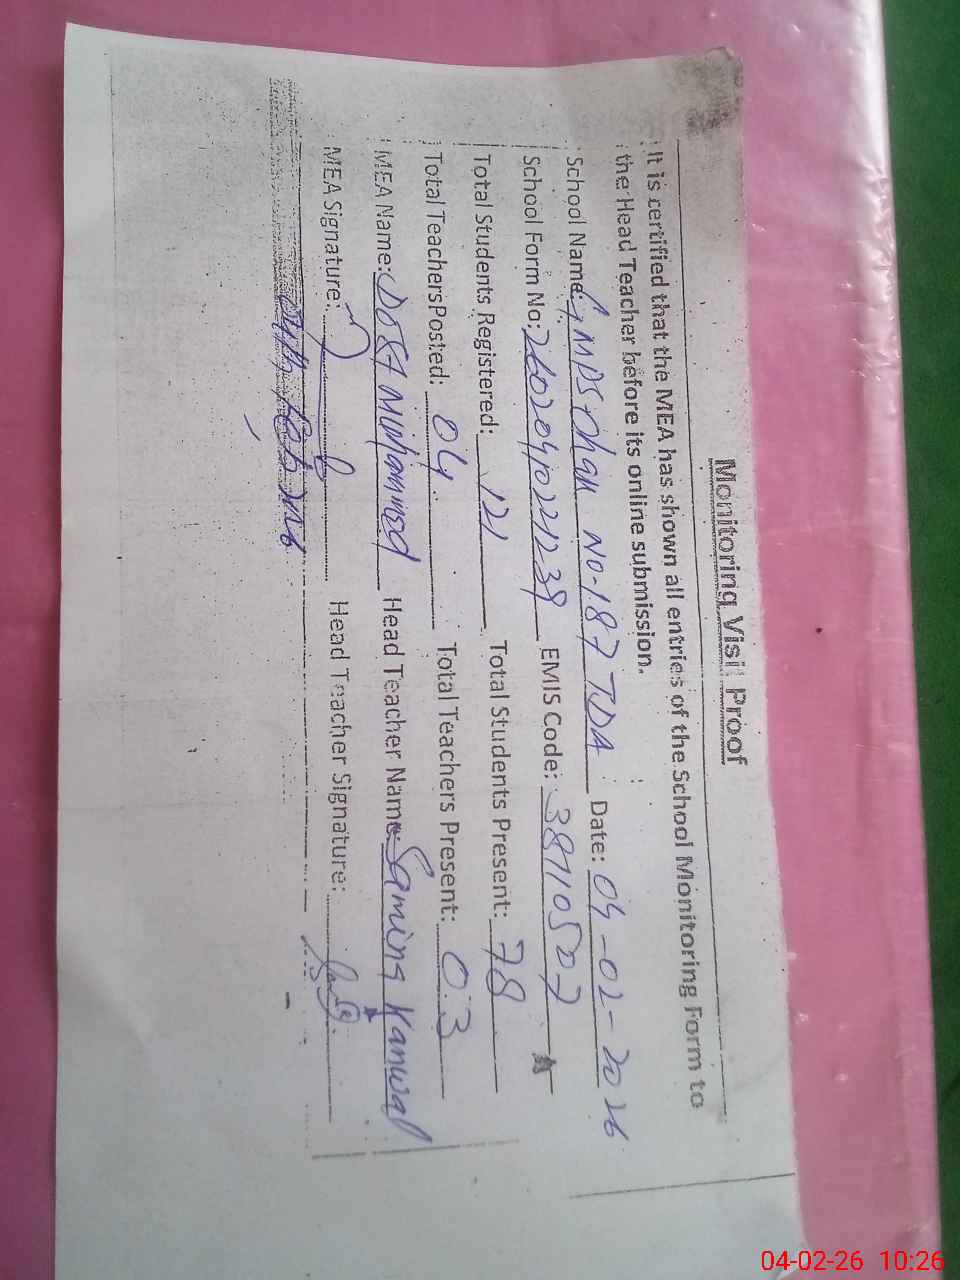 Monitoring Visit Proof
It is certified that the MEA has shown all entries of the School Monitoring Form to
the Head Teacher before its online submission.
School Name: GMPS Chak No-187 TDA Date: 04-02-2026
School Form No: EMIS Code:
Total Students Registered: 121 Total Students Present: 78
Total Teachers Posted: 04 Total Teachers Present: 03
MEA Name: Dost Muhammad Head Teacher Name: Samina Kanwal
MEA Signature: Head Teacher Signature:
04-02-26 10:26